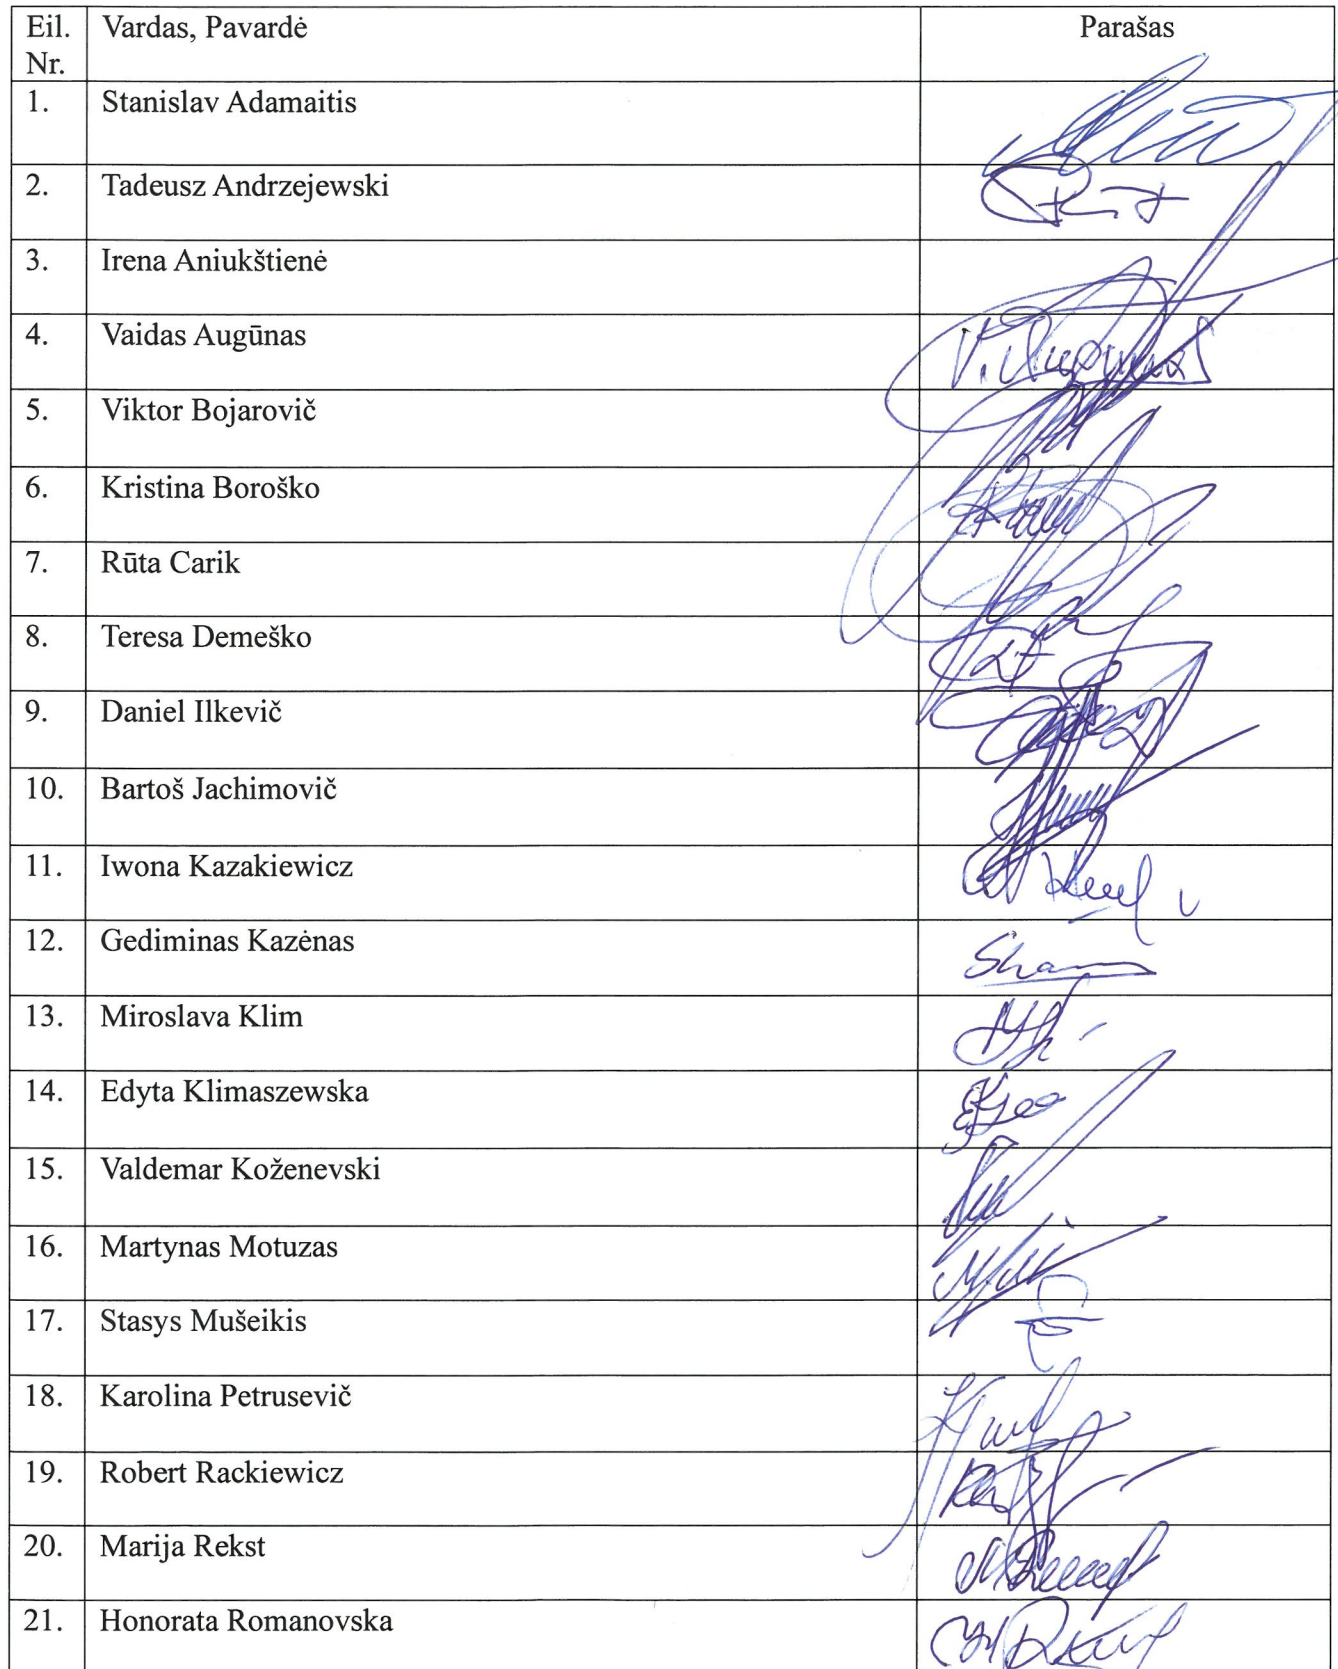 Eil. Nr. Vardas, Pavardė Parašas
1. Stanislav Adamaitis
2. Tadeusz Andrzejewski
3. Irena Aniukštienė
4. Vaidas Augūnas
5. Viktor Bojarovič
6. Kristina Boroško
7. Rūta Carik
8. Teresa Demeško
9. Daniel Ilkevič
10. Bartoš Jachimovič
11. Iwona Kazakiewicz
12. Gediminas Kazėnas
13. Miroslava Klim
14. Edyta Klimaszewska
15. Valdemar Koženevski
16. Martynas Motuzas
17. Stasys Mušeikis
18. Karolina Petrusevič
19. Robert Rackiewicz
20. Marija Rekst
21. Honorata Romanovska